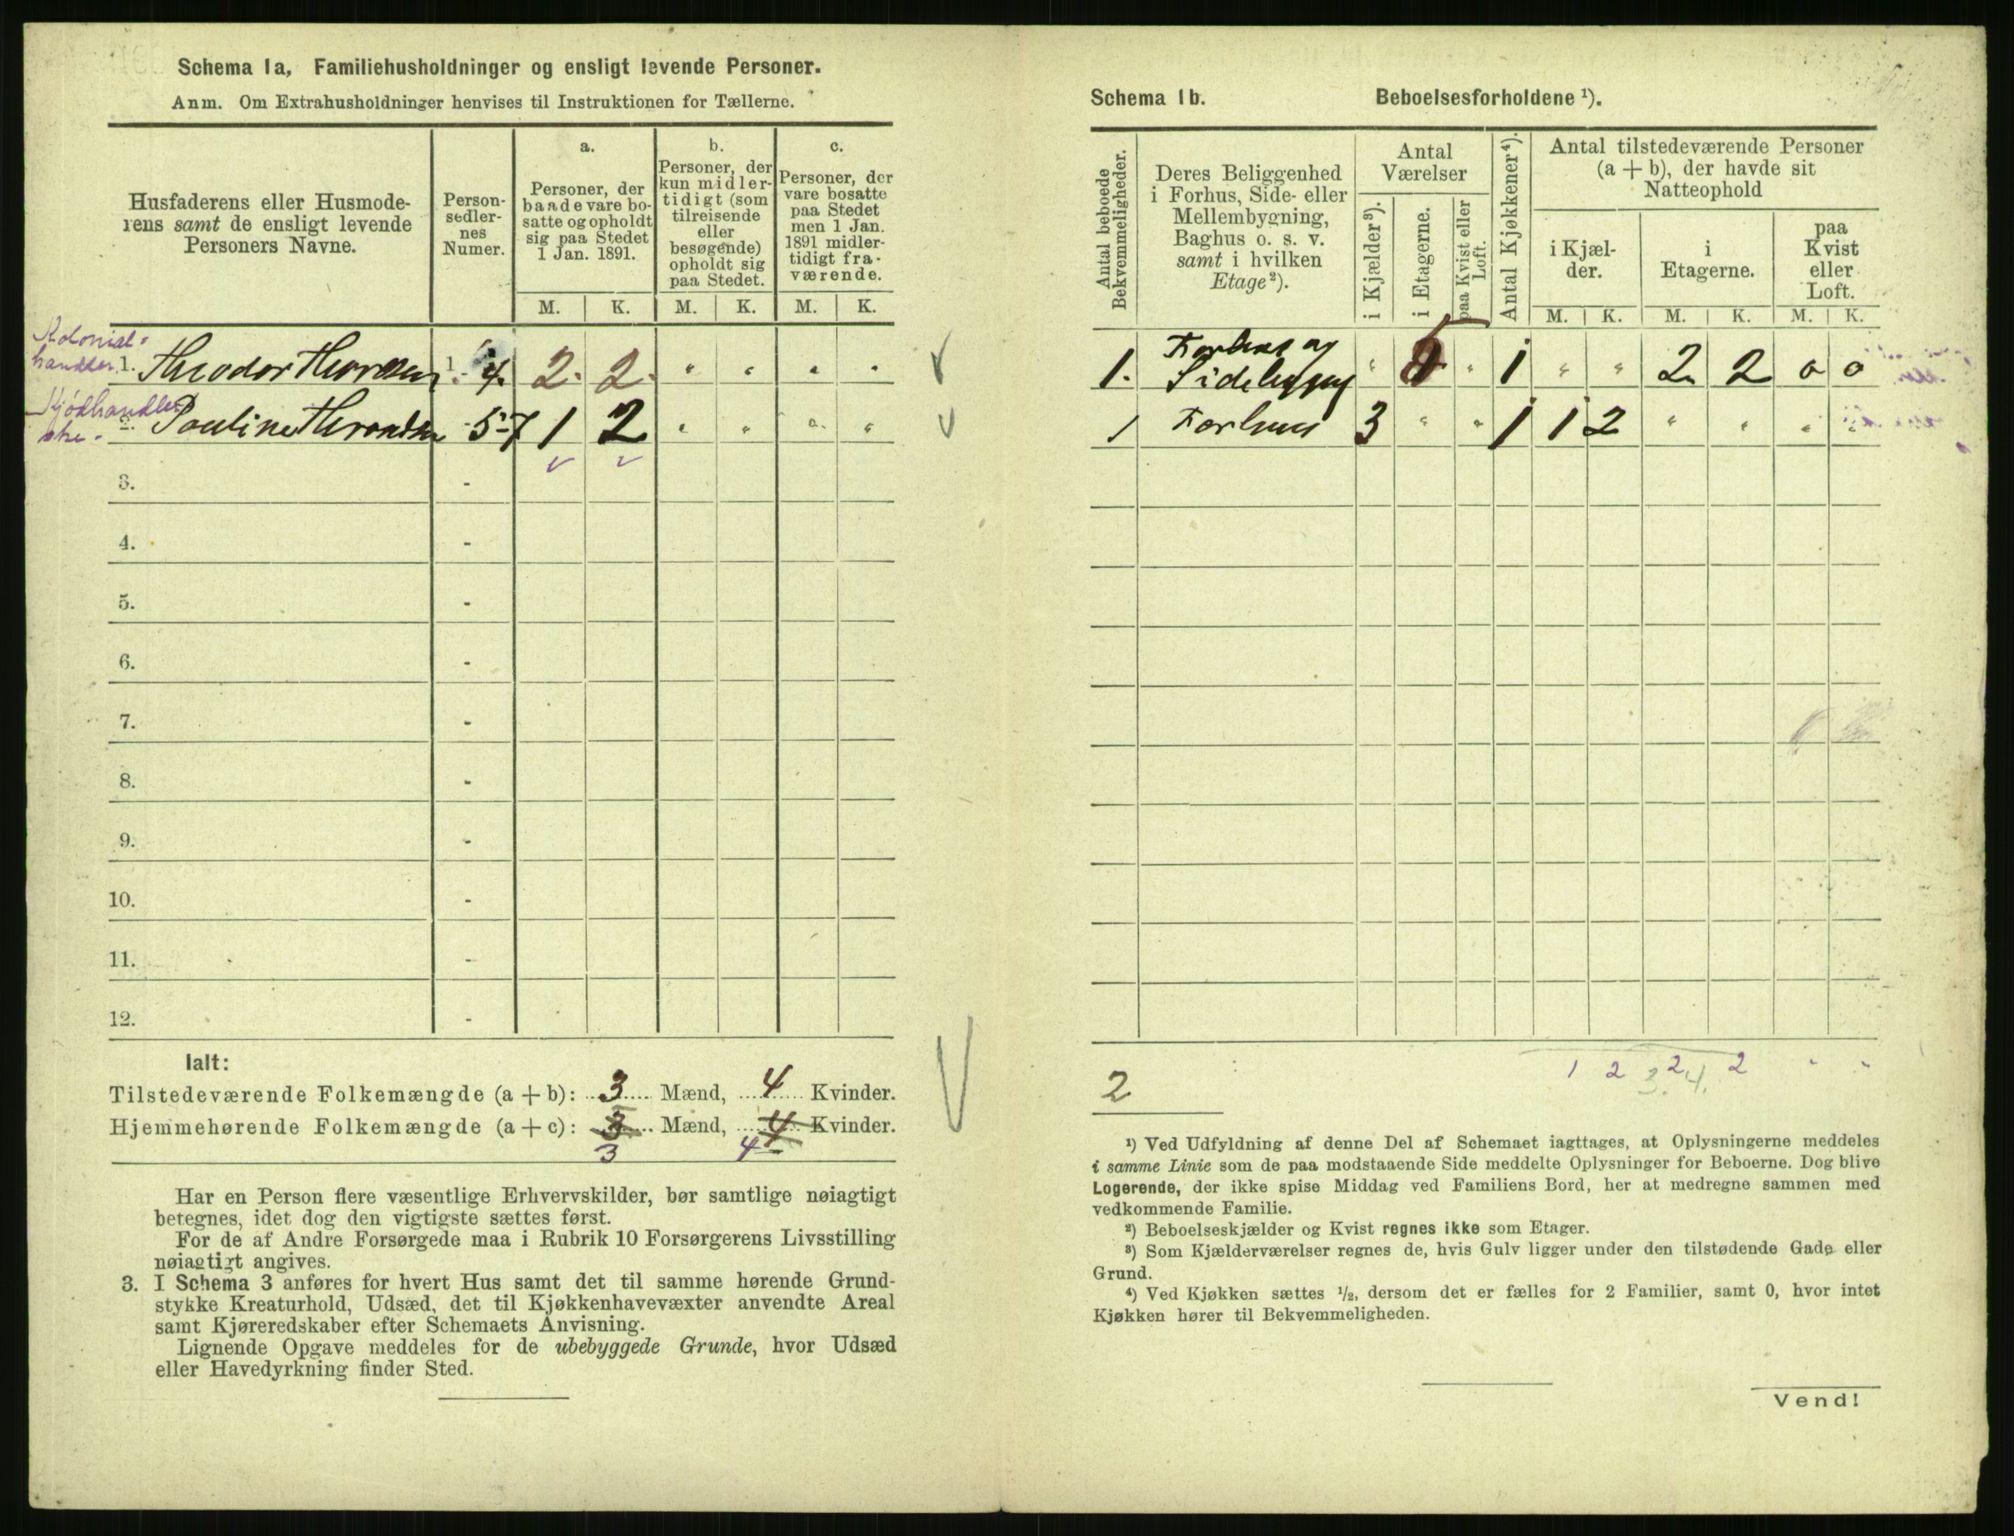 Schema 1a, Familiehusholdninger og ensligt levende Personer.
Anm. Om Extrahusholdninger henvises til Instruktionen for Tællerne.
Husfaderens eller Husmode-
rens samt de ensligt levende
Personers Navne.
Person-
sedler-
nes
Numer.
a.
Personer, der
baade vare bo-
satte og opholdt
sig paa Stedet
1 Jan. 1891.
b.
Personer, der
kun midler-
tidigt (som
tilreisende
eller
besøgende)
opholdt sig
paa Stedet.
c.
Personer, der
vare bosatte
paa Stedet
men 1 Jan.
1891 midler-
tidigt fra-
værende.
M. K. M. K. M. K.
Kolonial-
handler 1. Theodor 1. - 4. 2. 2. " " " "
Kjødhandler
ske. 2. Pauline 5-7 1 2 " " " "
3. -
4. -
5. -
6. -
7. -
8. -
9. -
10. -
11. -
12. -
Ialt:
Tilstedeværende Folkemængde (a + b): 3 Mænd, 4 Kvinder.
Hjemmehørende Folkemængde (a + c): 3 Mænd, 4 Kvinder.
3 4
Har en Person flere væsentlige Erhvervskilder, bør samtlige nøiagtigt
betegnes, idet dog den vigtigste sættes først.
For de af Andre Forsørgede maa i Rubrik 10 Forsørgerens Livsstilling
nøiagtigt angives.
3. I Schema 3 anføres for hvert Hus samt det til samme hørende Grund-
stykke Kreaturhold, Udsæd, det til Kjøkkenhavevæxter anvendte Areal
samt Kjøreredskaber efter Schemaets Anvisning.
Lignende Opgave meddeles for de ubebyggede Grunde, hvor Udsæd
eller Havedyrkning finder Sted.
Schema 1b. Beboelsesforholdene ¹).
Antal beboede
Bekvemmeligheder.
Deres Beliggenhed
i Forhus, Side- eller
Mellembygning,
Baghus o. s. v.
samt i hvilken
Etage ²).
Antal
Værelser
i Kjælder ³).
i Etagerne.
paa Kvist eller
Loft.
Antal Kjøkkener ⁴).
Antal tilstedeværende Personer
(a + b), der havde sit
Natteophold
i Kjæl-
der.
i
Etagerne.
paa
Kvist
eller
Loft.
M. K. M. K. M. K.
1. Forhus og
Sidebygning " 5 " 1 " " 2 2 0 0
1 Forhus 3 " " 1 1 2 " " " "
1 2 2 2 " "
3. 4.
2
¹) Ved Udfyldning af denne Del af Schemaet iagttages, at Oplysningerne meddeles
i samme Linie som de paa modstaaende Side meddelte Oplysninger for Beboerne. Dog blive
Logerende, der ikke spise Middag ved Familiens Bord, her at medregne sammen med
vedkommende Familie.
²) Beboelseskjælder og Kvist regnes ikke som Etager.
³) Som Kjælderværelser regnes de, hvis Gulv ligger under den tilstødende Gade eller
Grund.
⁴) Ved Kjøkken sættes ½, dersom det er fælles for 2 Familier, samt 0, hvor intet
Kjøkken hører til Bekvemmeligheden.
Vend!